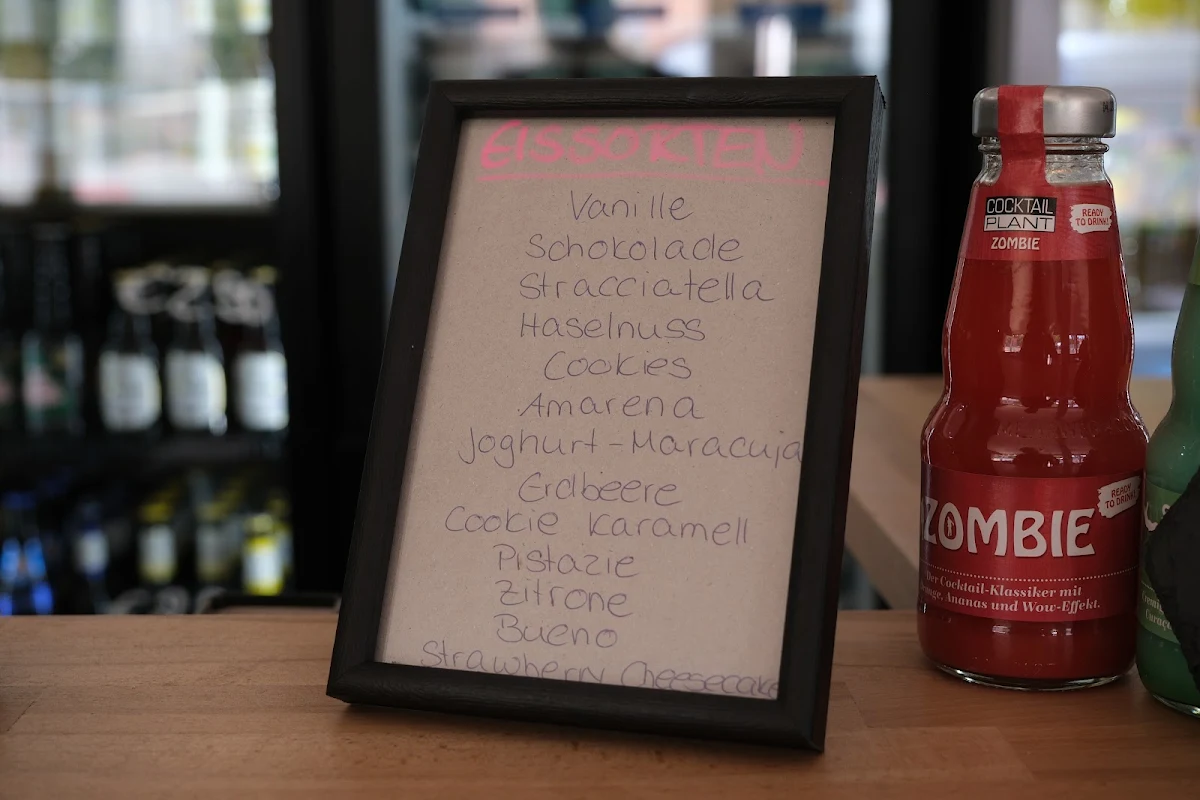 EISSORTEN
Vanille
Schokolade
Stracciatella
Haselnuss
Cookies
Amarena
Joghurt-Maracuja
Erdbeere
Cookie Karamell
Pistazie
Zitrone
Bueno
Strawberry Cheesecake
COCKTAIL
PLANT
ZOMBIE
READY
TO DRINK!
READY
TO DRINK!
ZOMBIE
Der Cocktail-Klassiker mit
Ananas und Wow-Effekt.